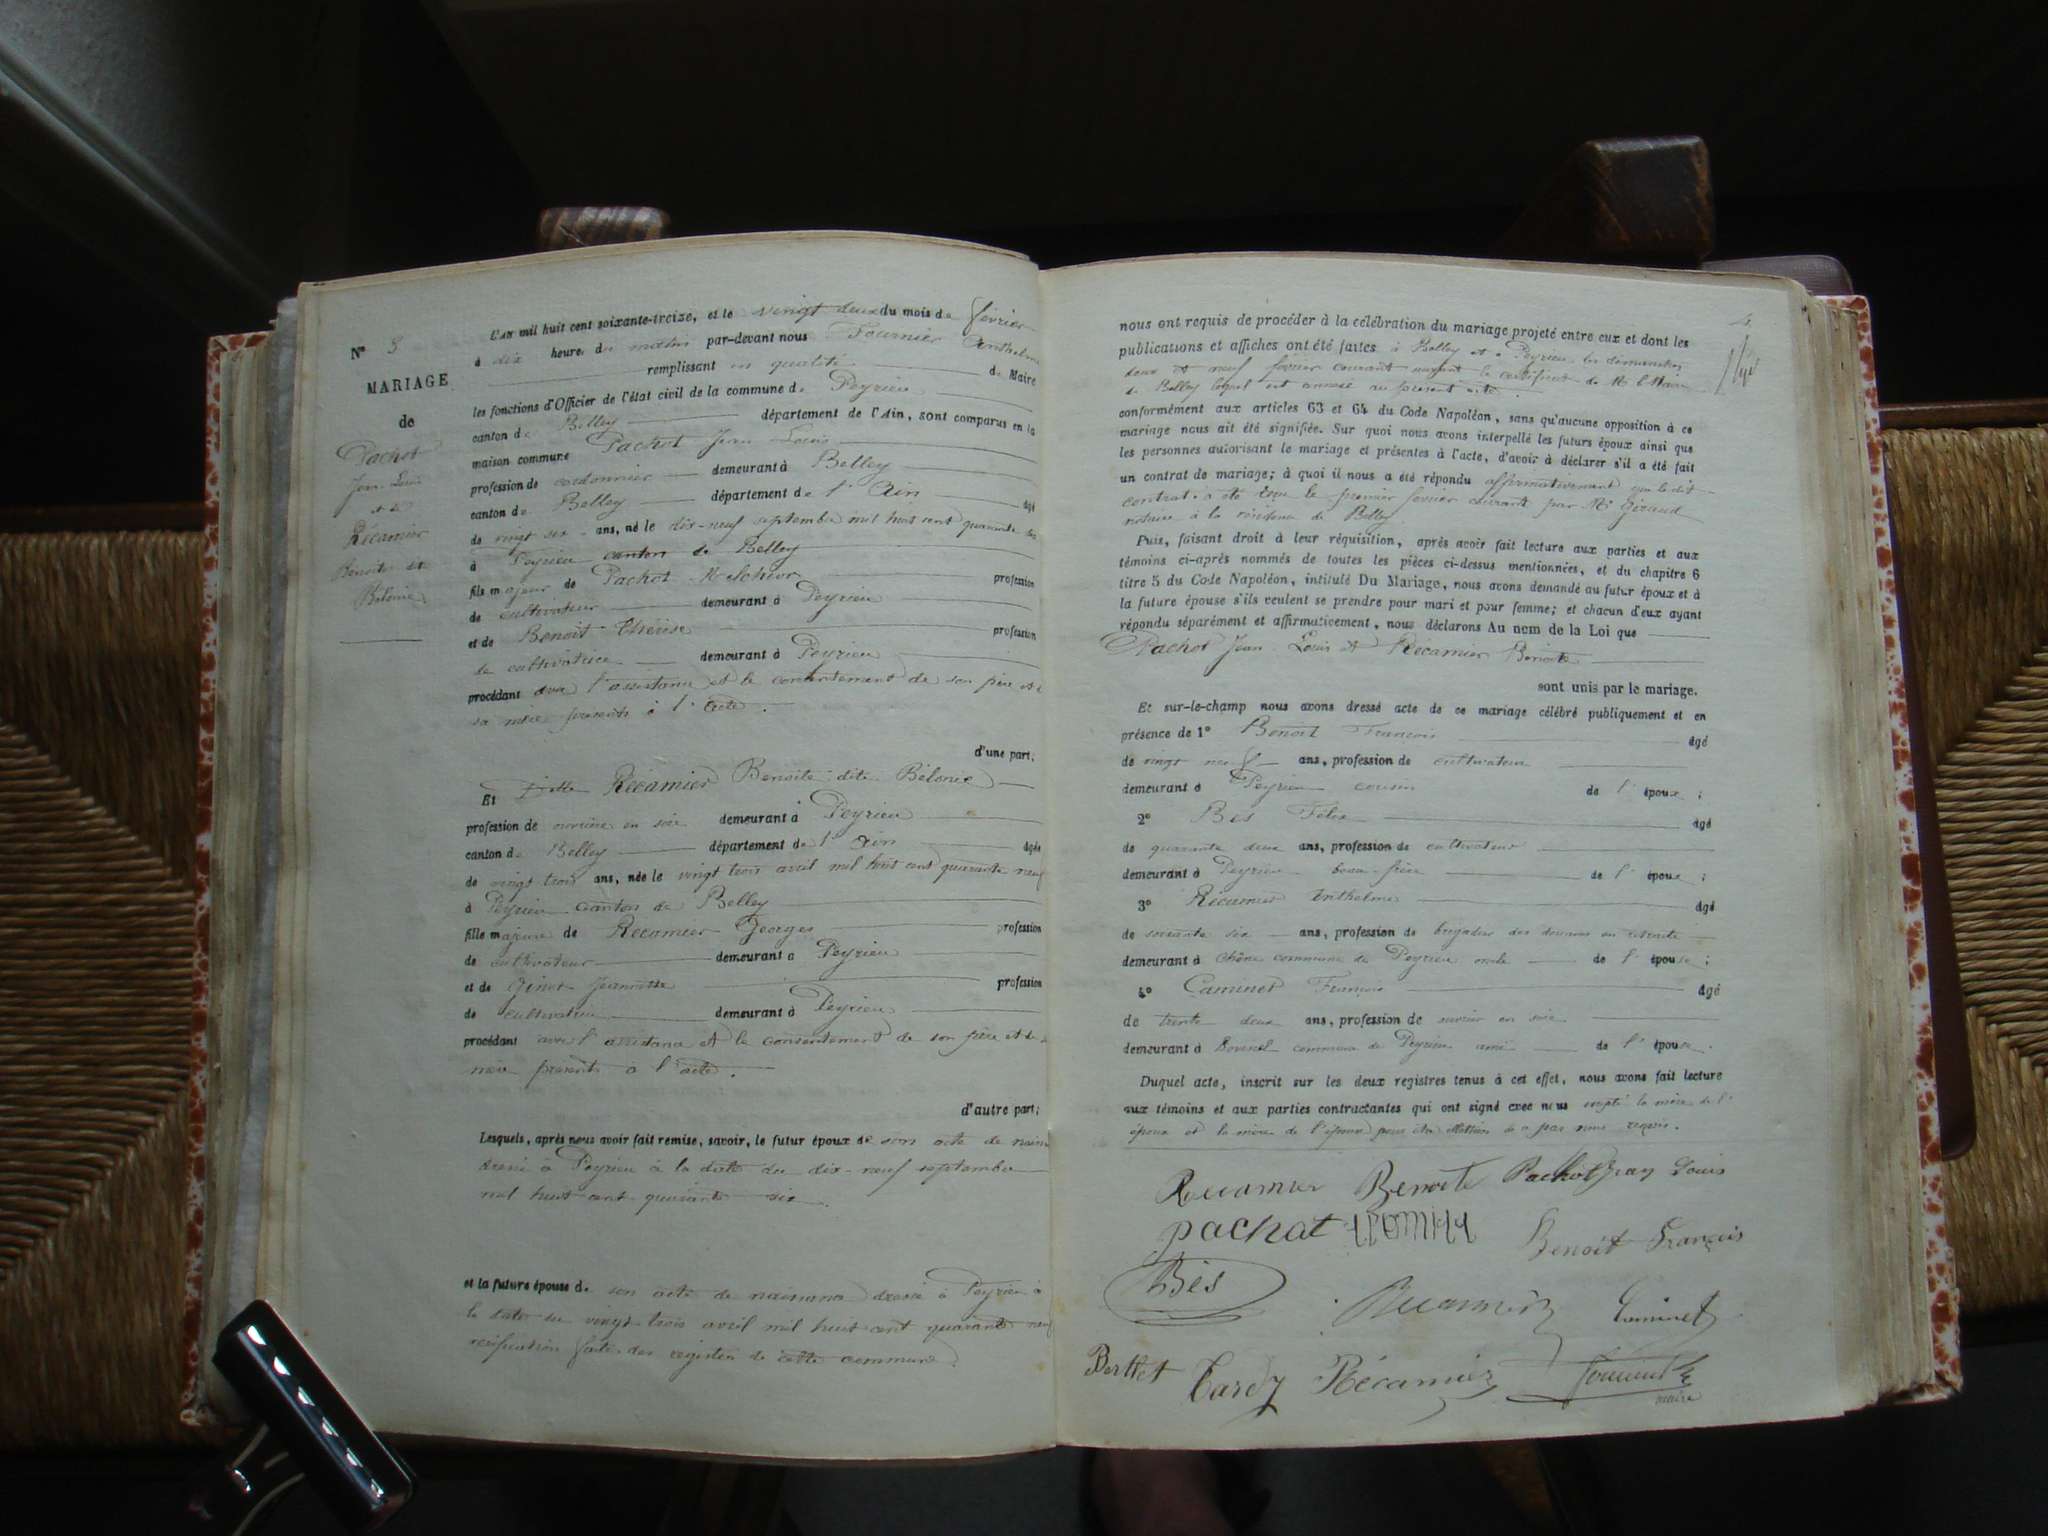 N° 3
MARIAGE
de
Pachot
Jean Louis
et de
Récamier
Benoite dite
Bélonie
L'an mil huit cent soixante-treize, et le vingt deux du mois de février
à dix heures du matin par-devant nous Fournier Anthelme
remplissant en qualité de Maire
les fonctions d'Officier de l'état civil de la commune de Peyrieu
canton de Belley département de l'Ain, sont comparus en la
maison commune Pachot Jean Louis
profession de cordonnier demeurant à Belley
canton de Belley département de l'Ain âgé
de vingt six ans, né le dix-neuf septembre mil huit cent quarante six
à Peyrieu canton de Belley
fils majeur de Pachot Melchior profession
de cultivateur demeurant à Peyrieu
et de Benoit Thérèse profession
de cultivatrice demeurant à Peyrieu
procédant avec l'assistance et le consentement de son père et de
sa mère présents à l'acte.
d'une part;
Et Delle Récamier Benoite dite Bélonie
profession de ouvrière en soie demeurant à Peyrieu
canton de Belley département de l'Ain âgée
de vingt trois ans, née le vingt trois avril mil huit cent quarante neuf
à Peyrieu canton de Belley
fille majeure de Récamier Georges profession
de cultivateur demeurant à Peyrieu
et de Ginot Jeannette profession
de cultivatrice demeurant à Peyrieu
procédant avec l'assistance et le consentement de son père et de sa
mère présents à l'acte.
d'autre part;
Lesquels, après nous avoir fait remise, savoir, le futur époux de son acte de naissance
dressé à Peyrieu à la date du dix-neuf septembre
mil huit cent quarante six.
et la future épouse de son acte de naissance dressé à Peyrieu à
la date du vingt-trois avril mil huit cent quarante neuf
vérification faite des registres de cette commune.
nous ont requis de procéder à la célébration du mariage projeté entre eux et dont les
publications et affiches ont été faites à Belley et à Peyrieu les dimanches
deux et neuf février courant suivant le certificat de Mr le Maire
de Belley lequel est annexé au présent acte
conformément aux articles 63 et 64 du Code Napoléon, sans qu'aucune opposition à ce
mariage nous ait été signifiée. Sur quoi nous avons interpellé les futurs époux ainsi que
les personnes autorisant le mariage et présentes à l'acte, d'avoir à déclarer s'il a été fait
un contrat de mariage; à quoi il nous a été répondu affirmativement que le dit
contrat a été reçu le premier février courant par Me Giraud
notaire à la résidence de Belley
Puis, faisant droit à leur réquisition, après avoir fait lecture aux parties et aux
témoins ci-après nommés de toutes les pièces ci-dessus mentionnées, et du chapitre 6
titre 5 du Code Napoléon, intitulé Du Mariage, nous avons demandé au futur époux et à
la future épouse s'ils veulent se prendre pour mari et pour femme; et chacun d'eux ayant
répondu séparément et affirmativement, nous déclarons Au nom de la Loi que
Pachot Jean Louis et Récamier Benoite
sont unis par le mariage.
Et sur-le-champ nous avons dressé acte de ce mariage célébré publiquement et en
présence de 1° Benoit François âgé
de vingt neuf ans, profession de cultivateur
demeurant à Peyrieu cousin de l'époux;
2° Bès Félix âgé
de quarante deux ans, profession de cultivateur
demeurant à Peyrieu beau-frère de l'époux;
3° Récamier Anthelme âgé
de soixante six ans, profession de brigadier des douanes en retraite
demeurant à Chêne commune de Peyrieu oncle de l'épouse;
4° Caminet François âgé
de trente deux ans, profession de ouvrier en soie
demeurant à commune de Peyrieu ami de l'épouse.
Duquel acte, inscrit sur les deux registres tenus à cet effet, nous avons fait lecture
aux témoins et aux parties contractantes qui ont signé avec nous excepté la mère de l'
époux et la mère de l'épouse pour être illettrées de ce par nous requis.
Recamier Benoite Pachot Jean Louis
pachot
Benoit François
Bès
Récamier
Caminet
Berthet Tardy Récamier Fournier
maire